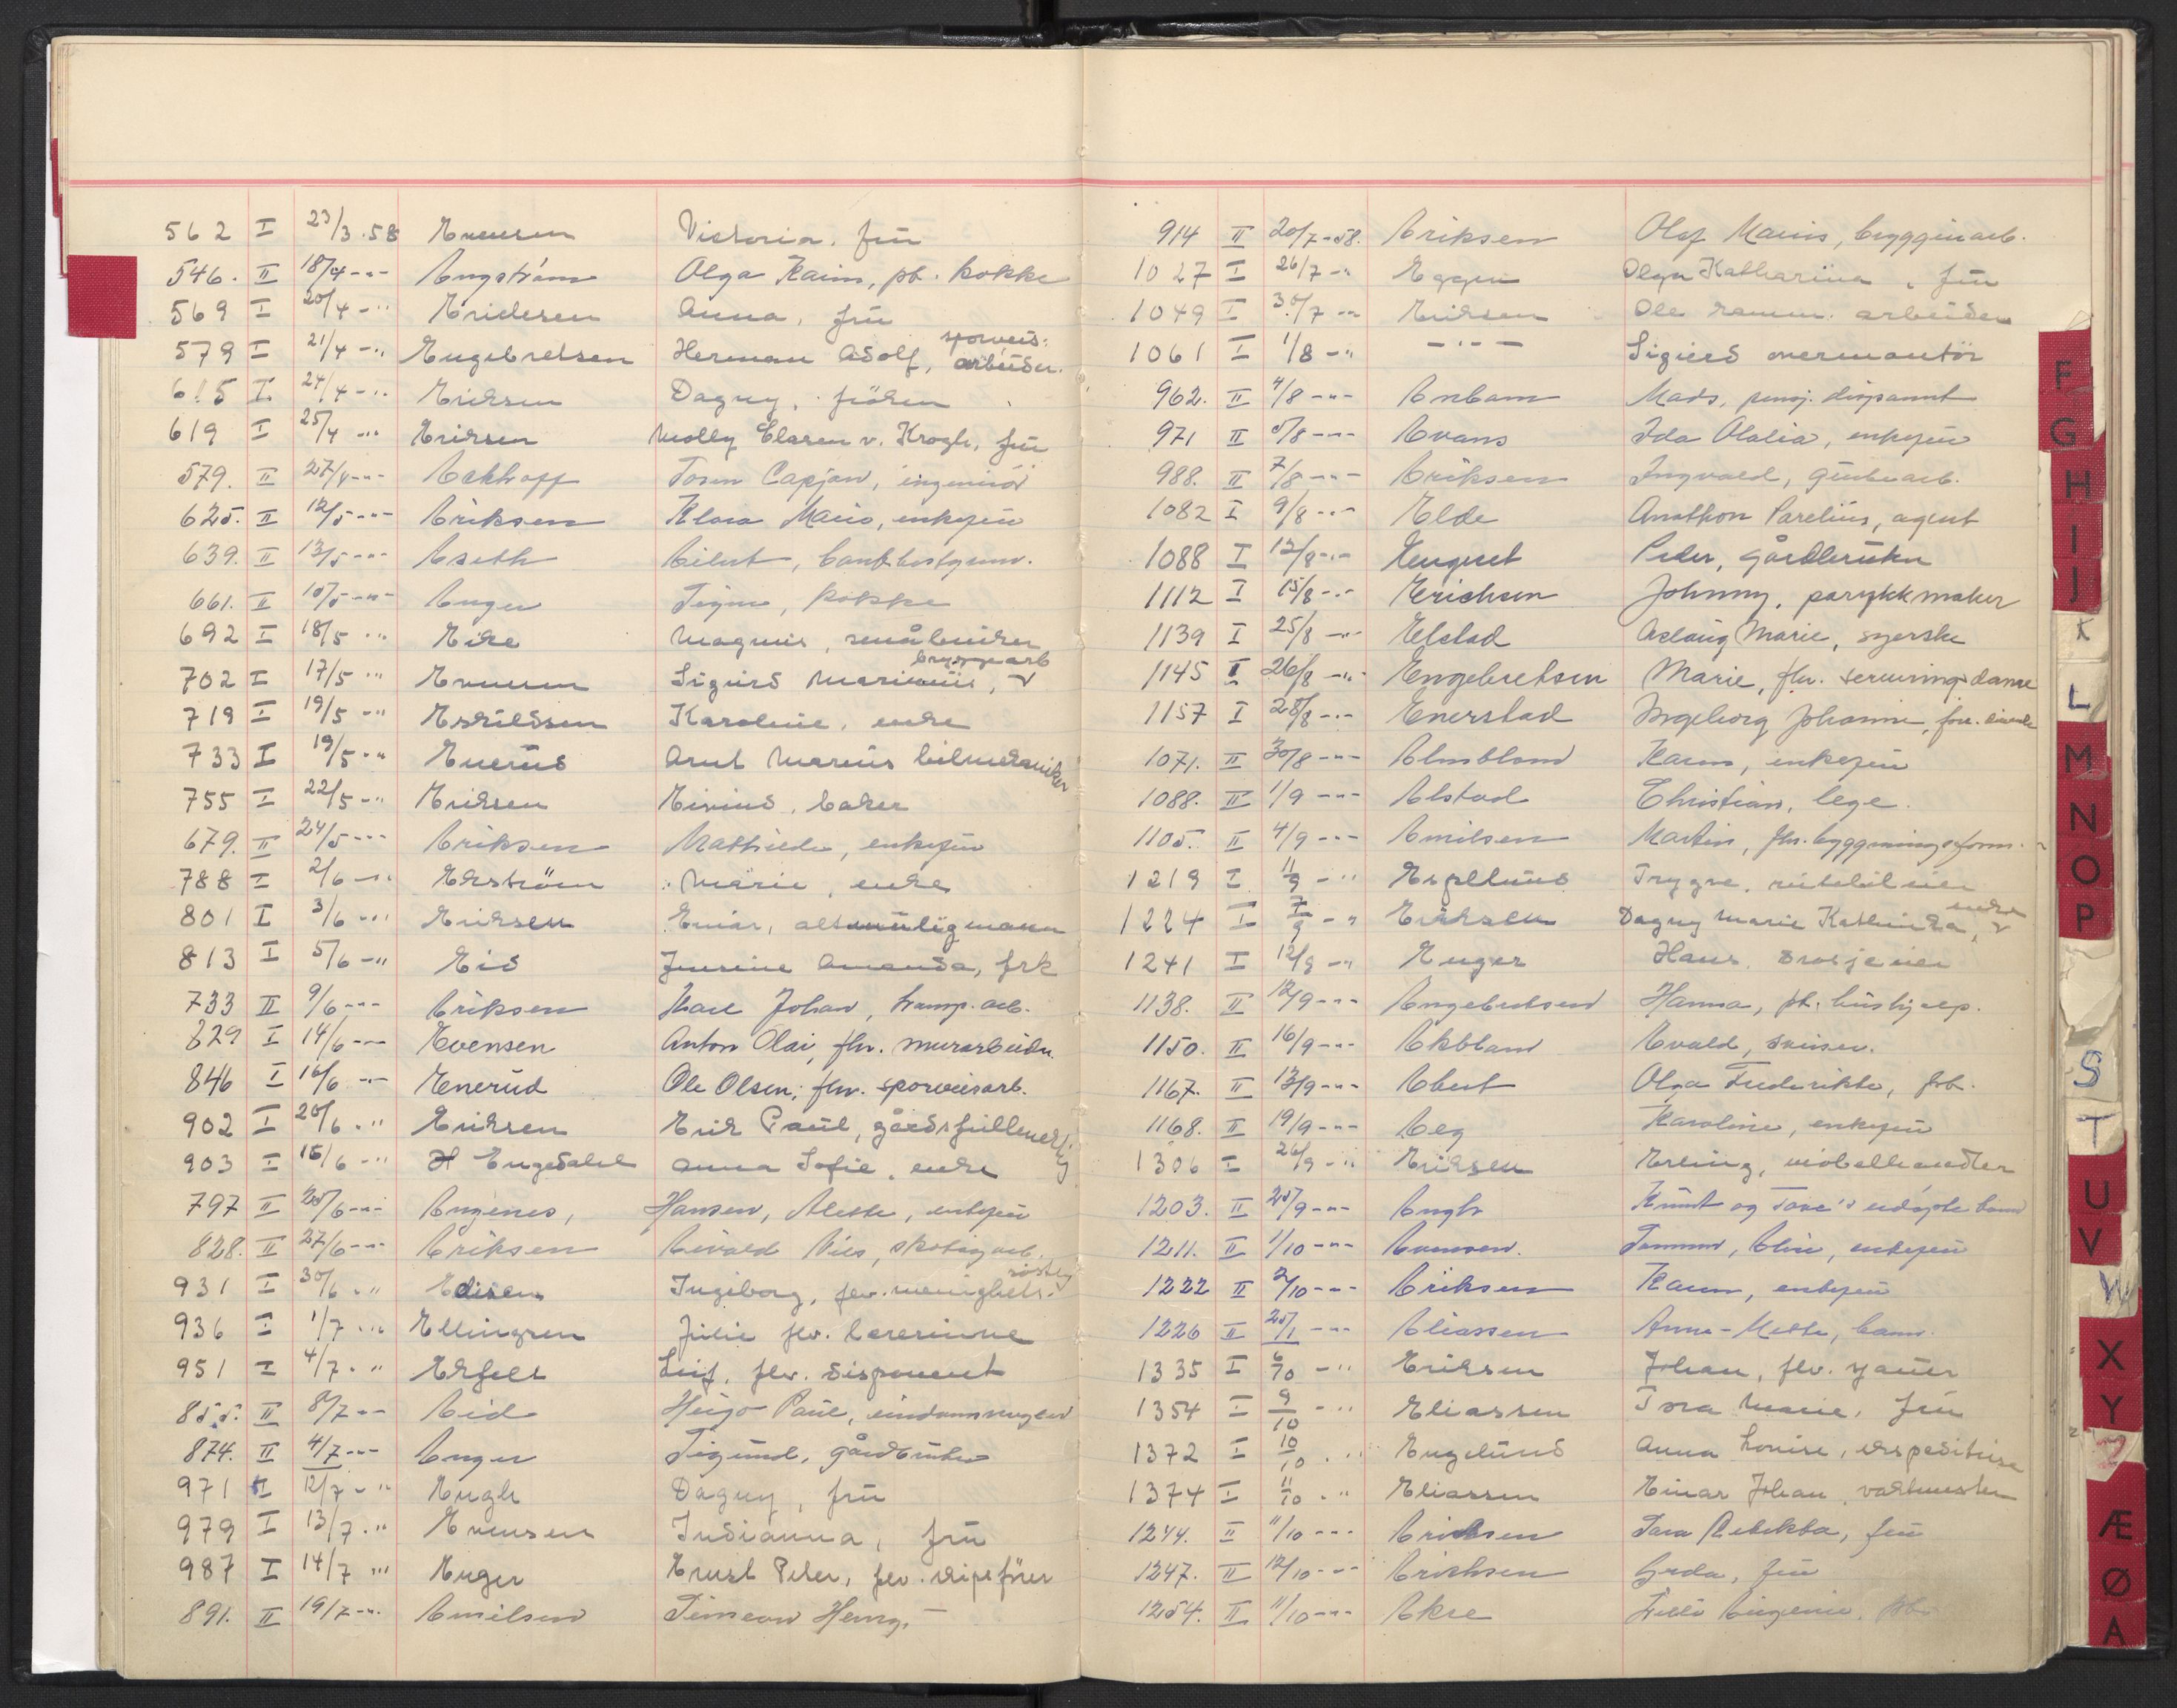 562 I 23/3.58 Evensen Victoria, frü
546. II 18/4 -"- Engström Olga Karin, pb. kokke
569 I 20/4 -" Eriksen Anna, frü
sporveis-
579 I 21/4 -" Engebretsen Herman Adolf, arbeider.
615 I 24/4 -" Eriksen Dagny, fröken
619 I 25/4 -" Eriksen Molly Elaren v. Krogh, frü
579. II 27/4 -"- Eckhoff ingeniör
625. II 12/5 -"- Eriksen Klara Marie, enkefrü
639. II 13/5 -"- Eseth Eilert,
661. II 15/5 -"- Enger Signe, kokke
692 I 18/5 -" Eike Magnus, småbruker
bryggearb
702 I 17/5 -" Evensen Sigurd
719 I 19/5 -" Eskildsen Karoline, enke
733 I 19/5 -" Enerüd Arnt Marius bilmekaniker
755 I 22/5 -" Eriksen Eivind, baker
679. II 24/5 -"- Eriksen Mathilde, enkefrü
788 I 2/6 -" Ekström Marie, enke
801 I 3/6 -" Eriksen Einar, altmüligmann
813 I 5/6 -" Eid Jensine Amanda, frk
733 II 9/6 -"- Eriksen Karl Johan,
829 I 14/6 -"- Evensen Anton Olai, fhv. murarbeider
846 I 16/6 -" Enerud Ole Olsen, fhv. sporveisarb.
902 I 20/6 -" Eriksen Erik Paul, gårdsfullmektig
903 I 15/6 -" Engedahl Anna Sofie, enke
797 II 25/6 -"- Engenes, Hansen, Alette, enkefrü
828. II 27/6 -"- Eriksen Eivald Nils, skotöyarb.
söster
931 I 30/6 -" Edisen Ingeborg, fhv. menighets-
936 I 1/7 -" Ellingsen Julie fhv. lærerinne
951 I 4/7 -" Ekfelt Leif, fhv. disponent
855. II 8/7 -" Eid Hügo Paul,
874. II 4/7 -"- Enger Sigürd, gårdbrüker
971 I 12/7 -" Engh Dagny, frü
979 I 13/7 -" Evensen Indianna, frü
987 I 14/7 -" Enger Ernst Peder, fhv. skipsförer
891. II 19/7 -" Emilsen Simeon Henry,
914 II 20/7 - 58. Eriksen Olaf Marius, bryggeriarb.
1027 I 26/7 -" Eggen Olga Katharina, frü
1049 I 30/7 -" Eriksen Ole arbeider
1061 I 1/8 -" - " - Sigurd overmontör
962. II 4/8 -"- Enbom Mads, pensj. disponent
971 II 5/8 -"- Evans Ida Olalia, enkefrü
988. II 7/8 -"- Eriksen Ingvald,
1082 I 9/8 -"- Elde Anathon Parelius, agent
1088 I 12/8 -"- Enget Peder, gårdbruker
1112 I 15/8 -" Erichsen Johnny, parykkmaker
1139 I 25/8 -"- Elstad Aslaug Marie, syerske
1145 I 26/8 -" Engebretsen Marie, fhv. serveringsdame
1157 I 28/8 -" Enerstad Ingeborg Johanne,
1071. II 30/8 -"- Elmblom Karen, enkefrü
1088. II 1/9 -"- Elstad Christian, lege.
1105. II 4/9 -"- Emilsen Martin, fhv. byggningsform.
1219 I 11/9 -" Espelund Trygve, rutebileier
enke
1224 I 7/9 -" Eriksen Dagny Marie Kathinka,
1241 I 12/9 -" Enger Hans drosjeeier
1138. II 12/9 -"- Engebretsen Hanna, pb. hushjelp.
1150. II 16/9 -"- Ekblom Evald,
1167. II 13/9 -"- Ebert Olga Frederikke, frk.
1168. II 19/9 -"- Eeg Karoline, enkefrü
1306 I 26/9 -" Eriksen Erling, möbelhandler
1203. II 25/9 -"- Engh Knut og Tove's udöpte barn
1211. II 1/10 -"- Evensen. Elise, enkefrü
1222 II 2/10 -"- Eriksen Karen, enkefrü
1226 II -"- Eliassen Anne-Mette, barn.
1335 I 6/10 -" Eriksen Johan, fhv.
1354 I 9/10 -" Eliassen Tora Marie, frü
1372 I 10/10 -" Engelund Anna Louise, ekspeditrise
1374 I 11/10 -" Eliassen Einar Johan, vaktmester
1244. II 11/10 -"- Erichsen Sara Rebekka, frü
1247. II 12/10 -"- Erichsen Gerda, frü
1254. II 11/10 -"- Ekre
F
G
H
I
J
K
L
M
N
O
P
S
T
U
V
W
X
Y
Z
Æ
Ø
A